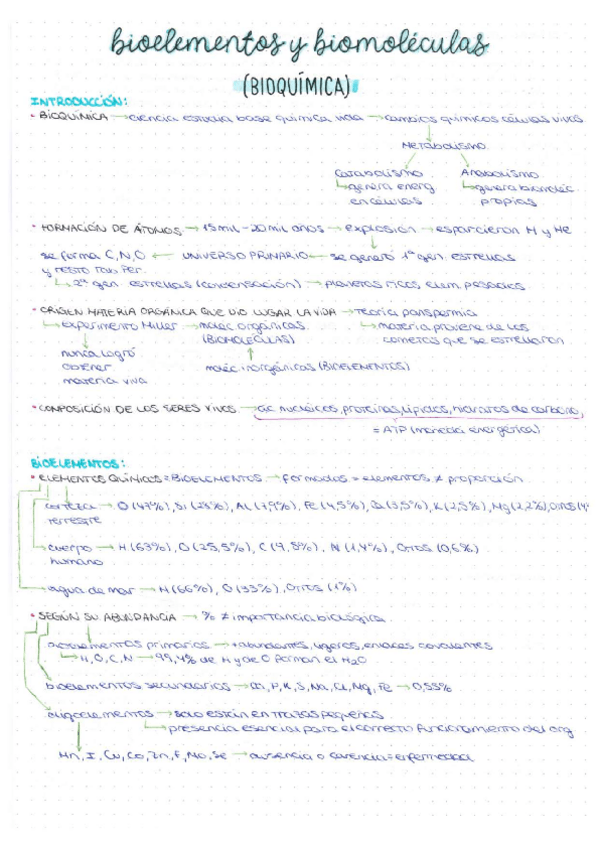 bioelementos y biomoléculas
(BIOQUÍMICA)
INTRODUCCIÓN:
• BIOQUÍMICA → ciencia estudia base química vida → cambios químicos células vivas
Metabolismo
Catabolismo Anabolismo
genera energ genera bioméléc
en células propias
• FORMACIÓN DE ÁTOMOS → 15 mil - 20 mil años → explosión → esparcieron H y He
se forma C, N, O ← UNIVERSO PRIMARIO ← se generó 1ª gen. estrellas
y resto Tab Per.
2ª gen. estrellas (condensación) → planetas ricos elem pesados
• ORIGEN MATERIA ORGÁNICA QUE DIO LUGAR LA VIDA → Teoría panspermia
experimento Miller → moléc orgánicas materia proviene de los
(BIOMOLÉCULAS) cometas que se estrellaron
nunca logró
obtener moléc inorgánicas (BIOELEMENTOS)
materia viva
• COMPOSICIÓN DE LOS SERES VIVOS → ác nucleicos, proteínas, lípidos, hidratos de carbono,
= ATP (moneda energética)
BIOELEMENTOS:
• ELEMENTOS QUÍMICOS = BIOELEMENTOS → formados = elementos ≠ proporción
corteza → O (47%), Si (28%), AL (7,9%), Fe (4,5%), Ca (3,5%), K (2,5%), Mg (2,2%), otros (4
terrestre
cuerpo → H (63%), O (25,5%), C (9,5%), N (1,4%), Otros (0,6%)
humano
agua de mar → H (66%), O (33%), Otros (1%)
• SEGÚN SU ABUNDANCIA → % ≠ importancia biológica
bioelementos primarios → + abundantes, ligeros, enlaces covalentes
H, O, C, N → 99,4% de H y de O forman el H2O
bioelementos secundarios → Ca, P, K, S, Na, Cl, Mg, Fe → 0,55%
oligoelementos → solo están en trazas pequeñas
presencia esencial para el correcto funcionamiento del org
Mn, I, Cu, Co, Zn, F, Mo, Se → ausencia o carencia = enfermedad